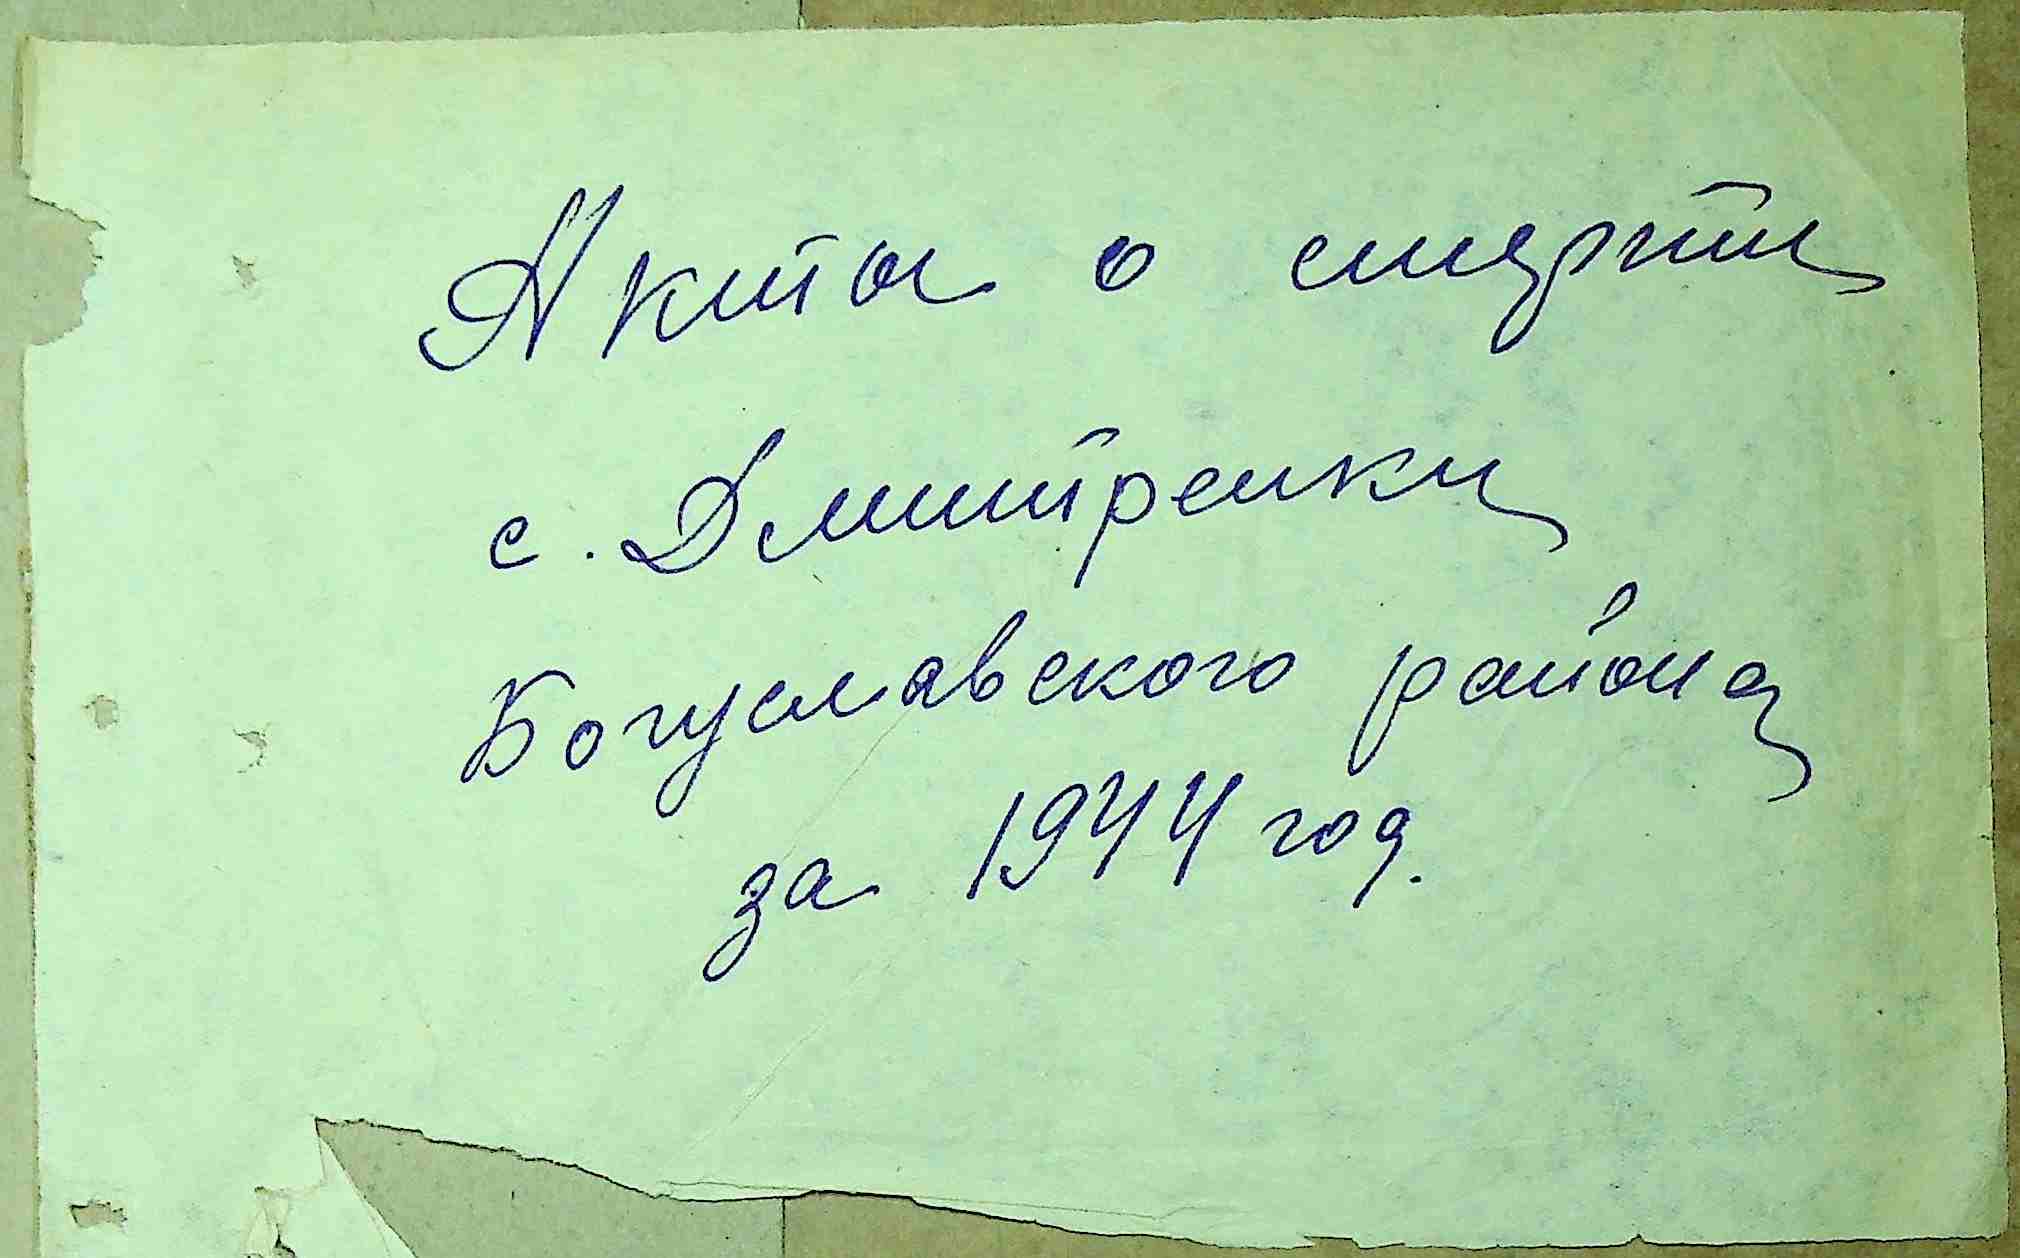 Акты о смерти
с. Дмитренки
Богуславского района
за 1944 год.